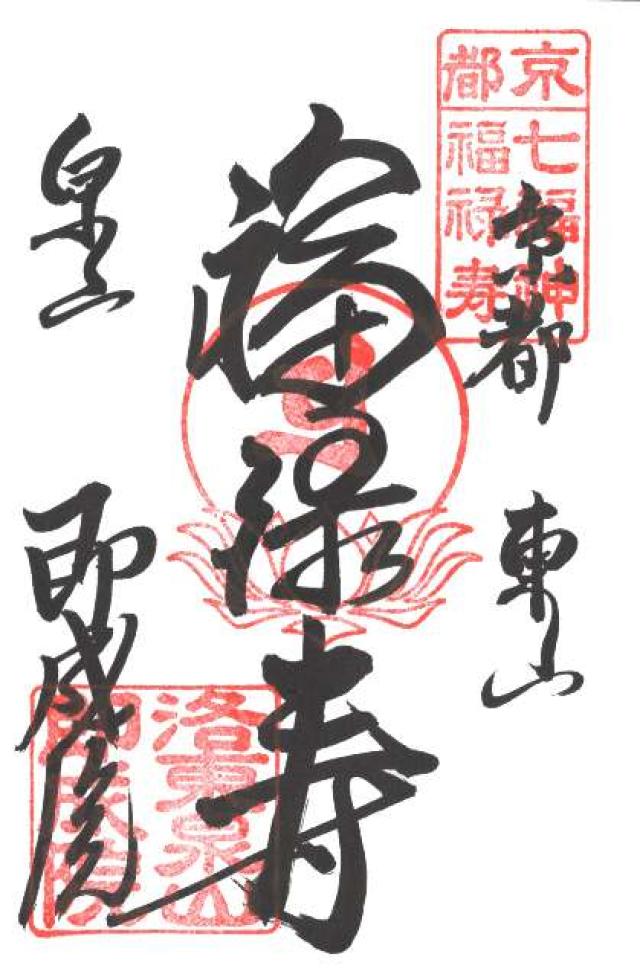 京都
七福神
福禄寿
京都
東山
福禄寿
泉山
即成院
洛東泉山
即成院